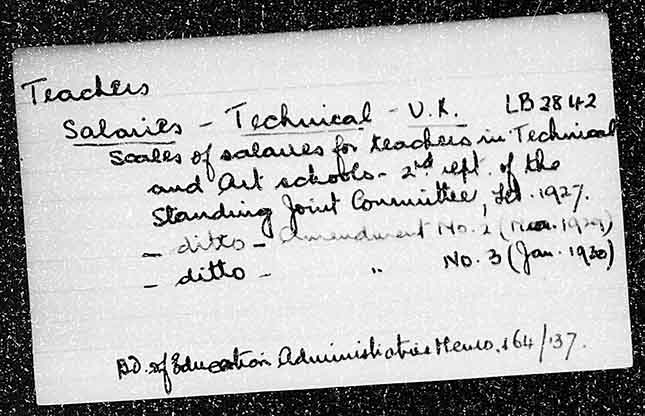 Teachers
Salaries - Technical - U.K. LB2842
Scales of salaries for teachers in Technical
and Art schools - 2nd rept. of the
Standing Joint Committee, 1927.
- ditto - Amendment No. 2 (1929)
- ditto - " No. 3 (Jan. 1930)
Bd. of Education Administrative Memo. 64/137.